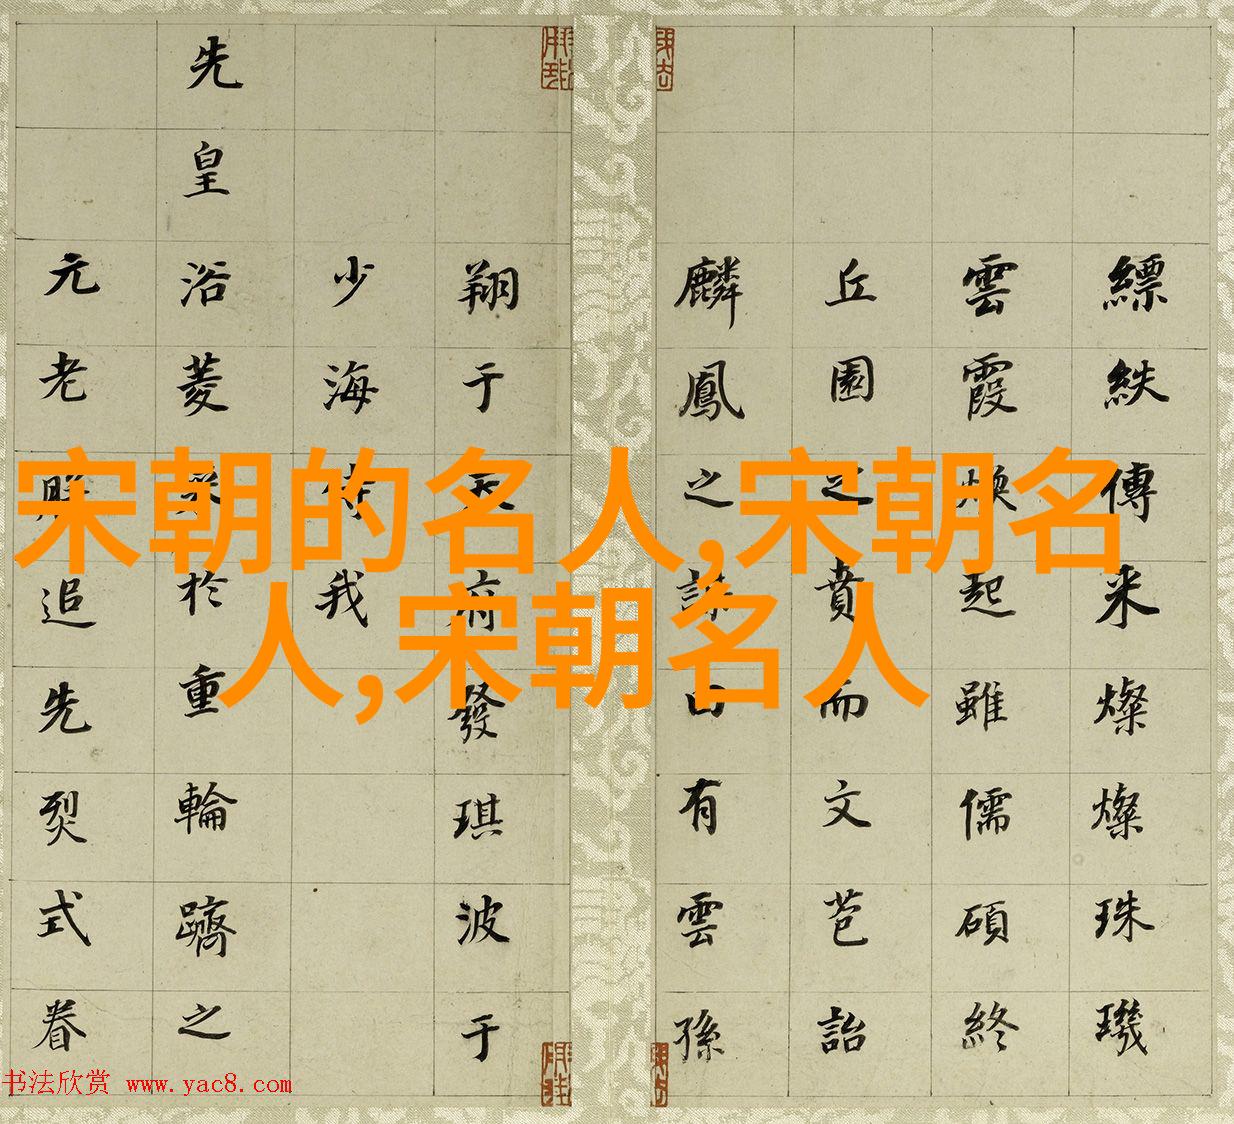 宋朝的名人,宋朝名
人,宋朝名人
縹紩傳来燦燦珠璣
雲霞煥起雖儒碩終
丘園之賁而文芭詒
麟鳳之有雲孫
翔于天府發琪波于
少海侍我
先皇浴菱於重輪躋之
元老追先烈式眷
书法欣赏 www.yac8.com